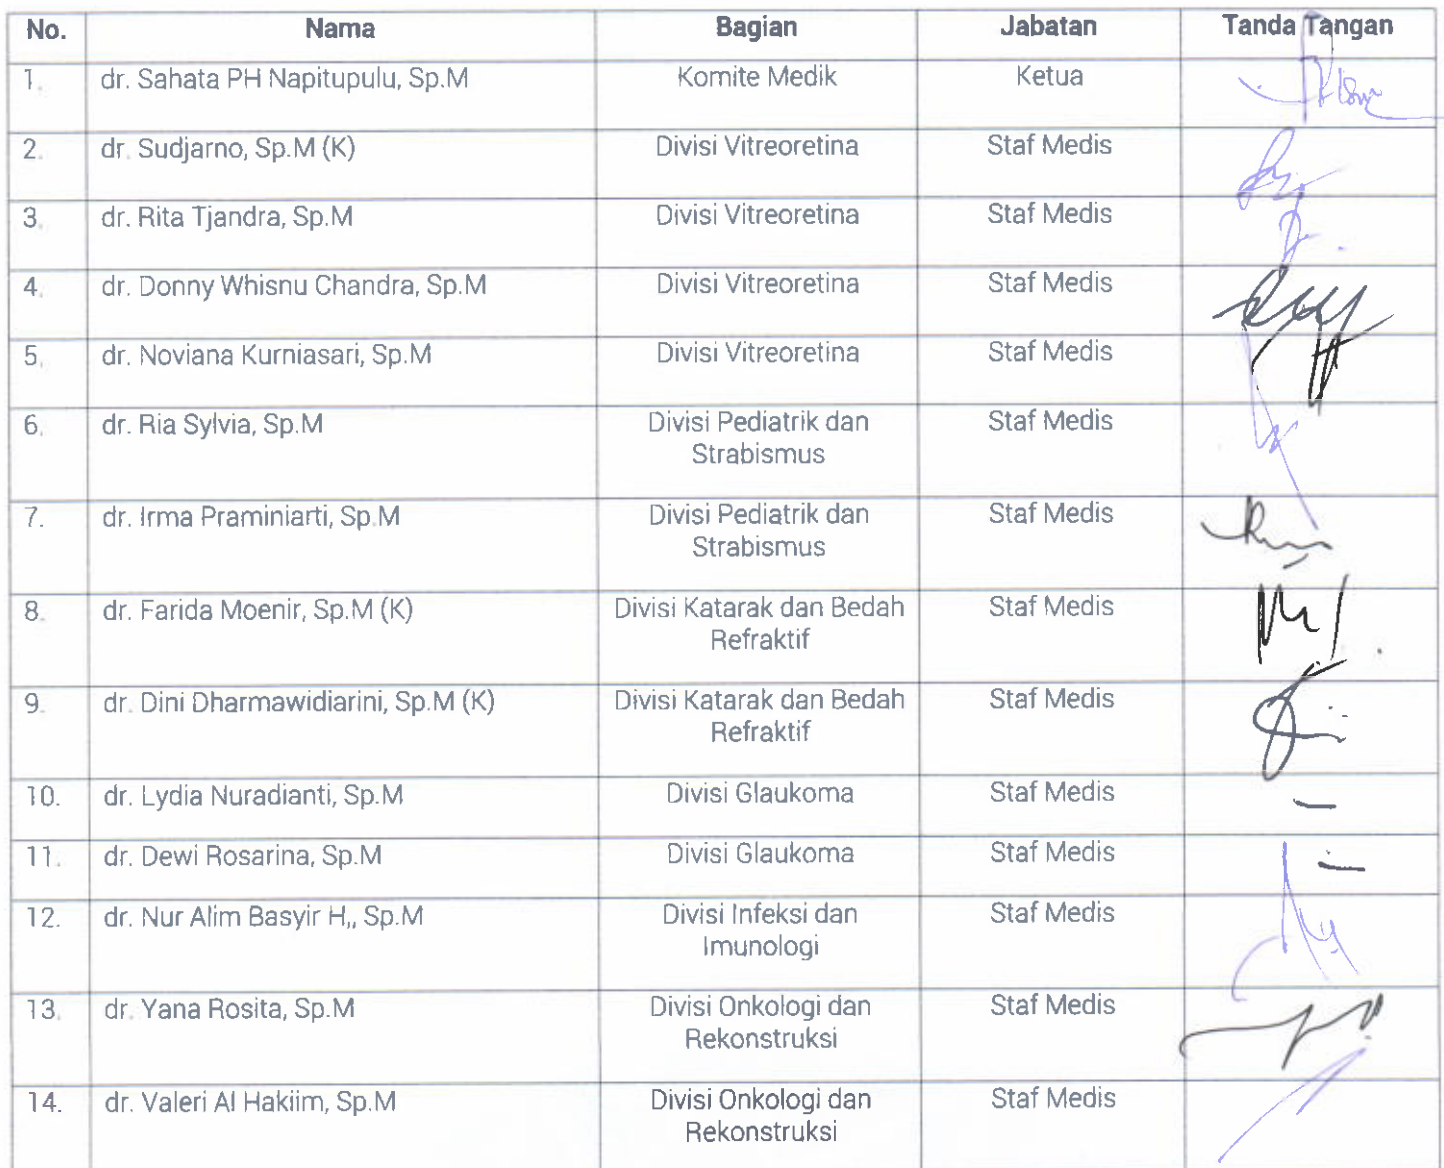 No. Nama Bagian Jabatan Tanda Tangan
1. dr. Sahata PH Napitupulu, Sp.M Komite Medik Ketua
2. dr. Sudjarno, Sp.M (K) Divisi Vitreoretina Staf Medis
3. dr. Rita Tjandra, Sp.M Divisi Vitreoretina Staf Medis
4. dr. Donny Whisnu Chandra, Sp.M Divisi Vitreoretina Staf Medis
5. dr. Noviana Kurniasari, Sp.M Divisi Vitreoretina Staf Medis
6. dr. Ria Sylvia, Sp.M Divisi Pediatrik dan Staf Medis
Strabismus
7. dr. Irma Praminiarti, Sp.M Divisi Pediatrik dan Staf Medis
Strabismus
8. dr. Farida Moenir, Sp.M (K) Divisi Katarak dan Bedah Staf Medis
Refraktif
9. dr. Dini Dharmawidiarini, Sp.M (K) Divisi Katarak dan Bedah Staf Medis
Refraktif
10. dr. Lydia Nuradianti, Sp.M Divisi Glaukoma Staf Medis
11. dr. Dewi Rosarina, Sp.M Divisi Glaukoma Staf Medis
12. dr. Nur Alim Basyir H,, Sp.M Divisi Infeksi dan Staf Medis
Imunologi
13. dr. Yana Rosita, Sp.M Divisi Onkologi dan Staf Medis
Rekonstruksi
14. dr. Valeri Al Hakiim, Sp.M Divisi Onkologi dan Staf Medis
Rekonstruksi